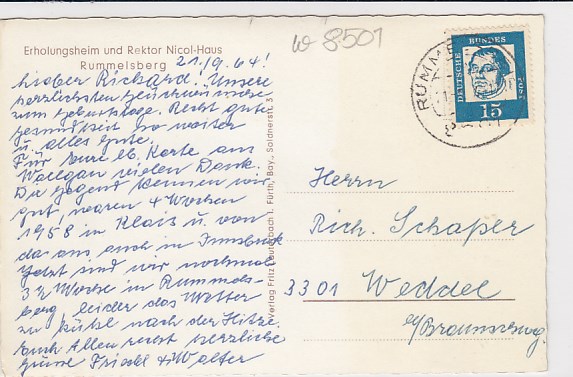 Erholungsheim und Rektor Nicol-Haus
Rummelsberg
w 8501
21./9. 64!
Lieber Richard! Unsere
herzlichsten Glückwünsche
zum Geburtstage. Recht gute
Gesundheit so weiter
u. alles Gute.
Für Eure lb. Karte aus
Wallgau vielen Dank.
Die Gegend kennen wir
gut, waren 4 Wochen
1958 in Klais u. von
da aus auch in Innsbruck
Jetzt sind wir nochmals
3 ½ Woche in Rummels-
berg, leider das Wetter
zu kühl nach der Hitze.
Euch Allen recht herzliche
Grüsse Friedl + Walter
Verlag Fritz Lauterbach i. Fürth, Bay., Soldnerstr. 3
DEUTSCHE BUNDESPOST
15
RUMM
Herrn
Rich. Schaper
3301 Weddel
b/Braunschweig.